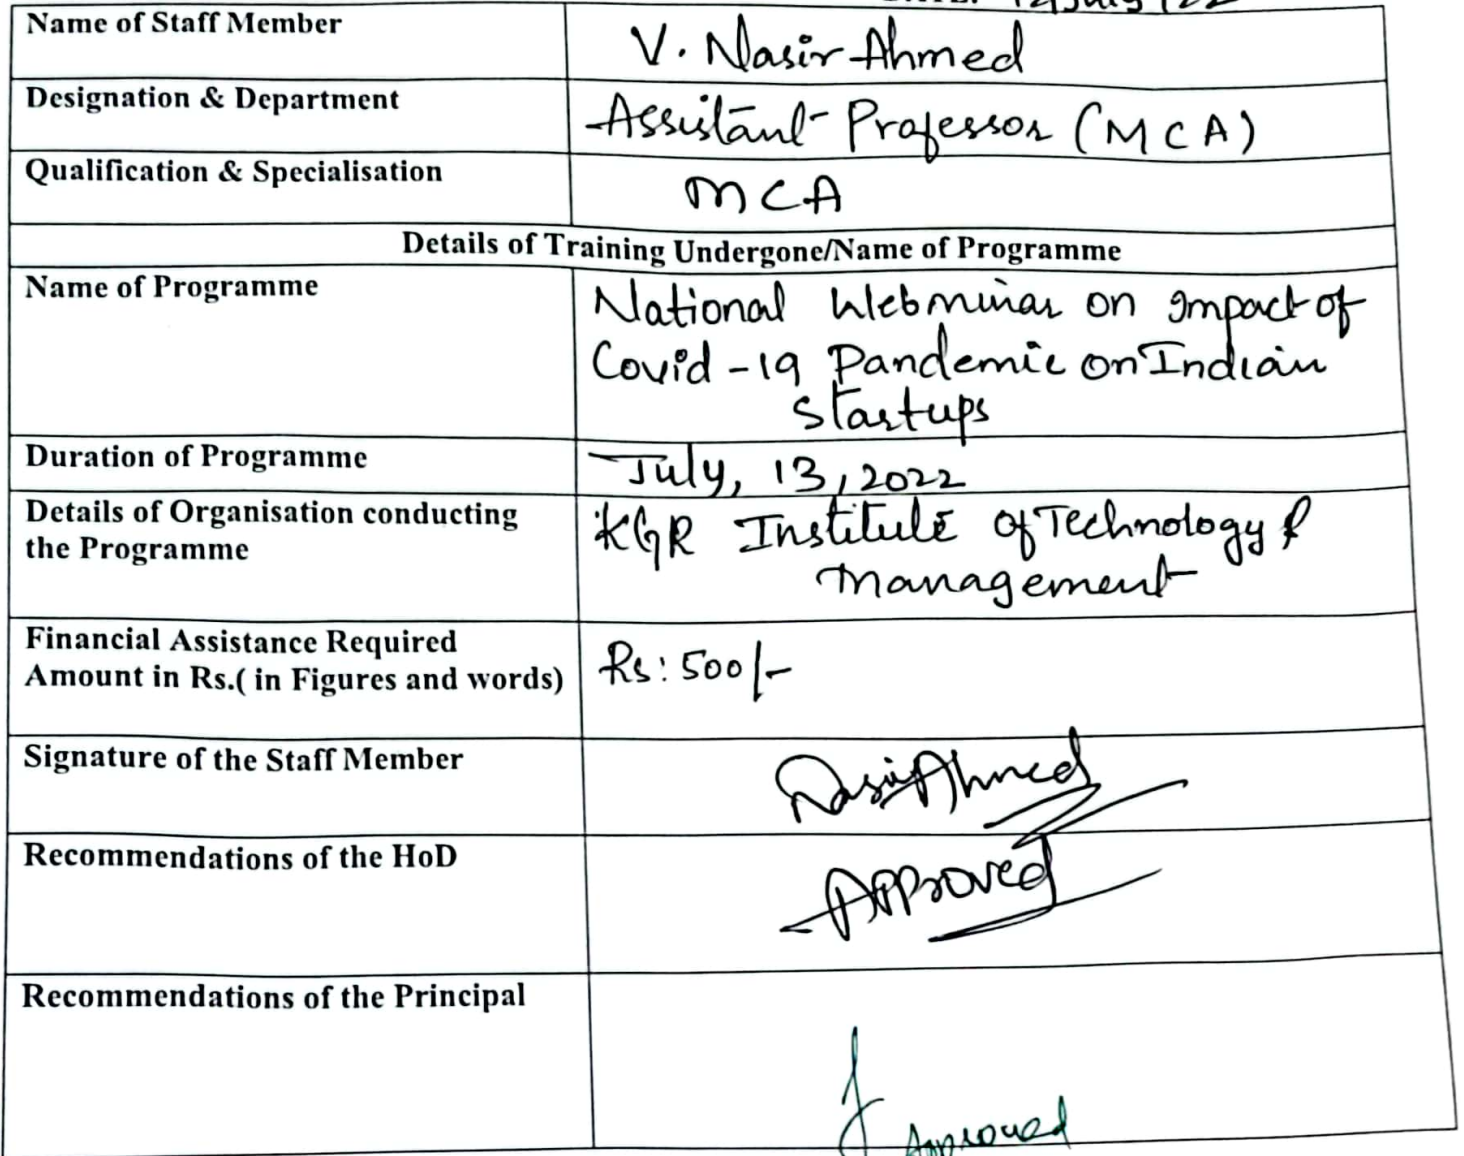 Name of Staff Member
V. Nasir Ahmed
Designation & Department
Assistant Professor (MCA)
Qualification & Specialisation
MCA
Details of Training Undergone/Name of Programme
Name of Programme
National Webminar on Impact of
Covid-19 Pandemic on Indian
Startups
Duration of Programme
July, 13, 2022
Details of Organisation conducting
the Programme
KGR Institute of Technology &
Management
Financial Assistance Required
Amount in Rs.( in Figures and words)
Rs: 500/-
Signature of the Staff Member
Nasir Ahmed
Recommendations of the HoD
Approved
Recommendations of the Principal
Approved